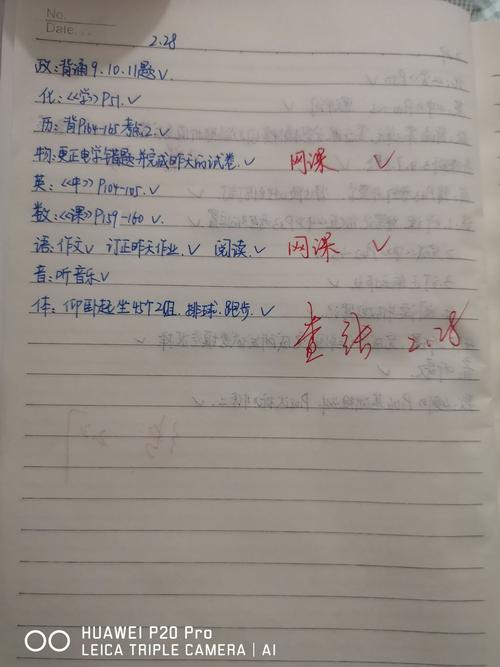 No.
Date.
2.28
政:背诵9.10.11题✓
化:《学》P51.✓
历:背P164-165考点2.✓
物:更正电学错题并完成昨天的试卷.✓ 网课 ✓
英:《中》P104-105.✓
数:《课》P159-160 ✓
语:作文✓ 订正昨天作业.✓ 阅读.✓ 网课 ✓
音:听音乐✓
体:仰卧起坐45个2组.排球.跑步.✓
查 2.28
HUAWEI P20 Pro
LEICA TRIPLE CAMERA | AI